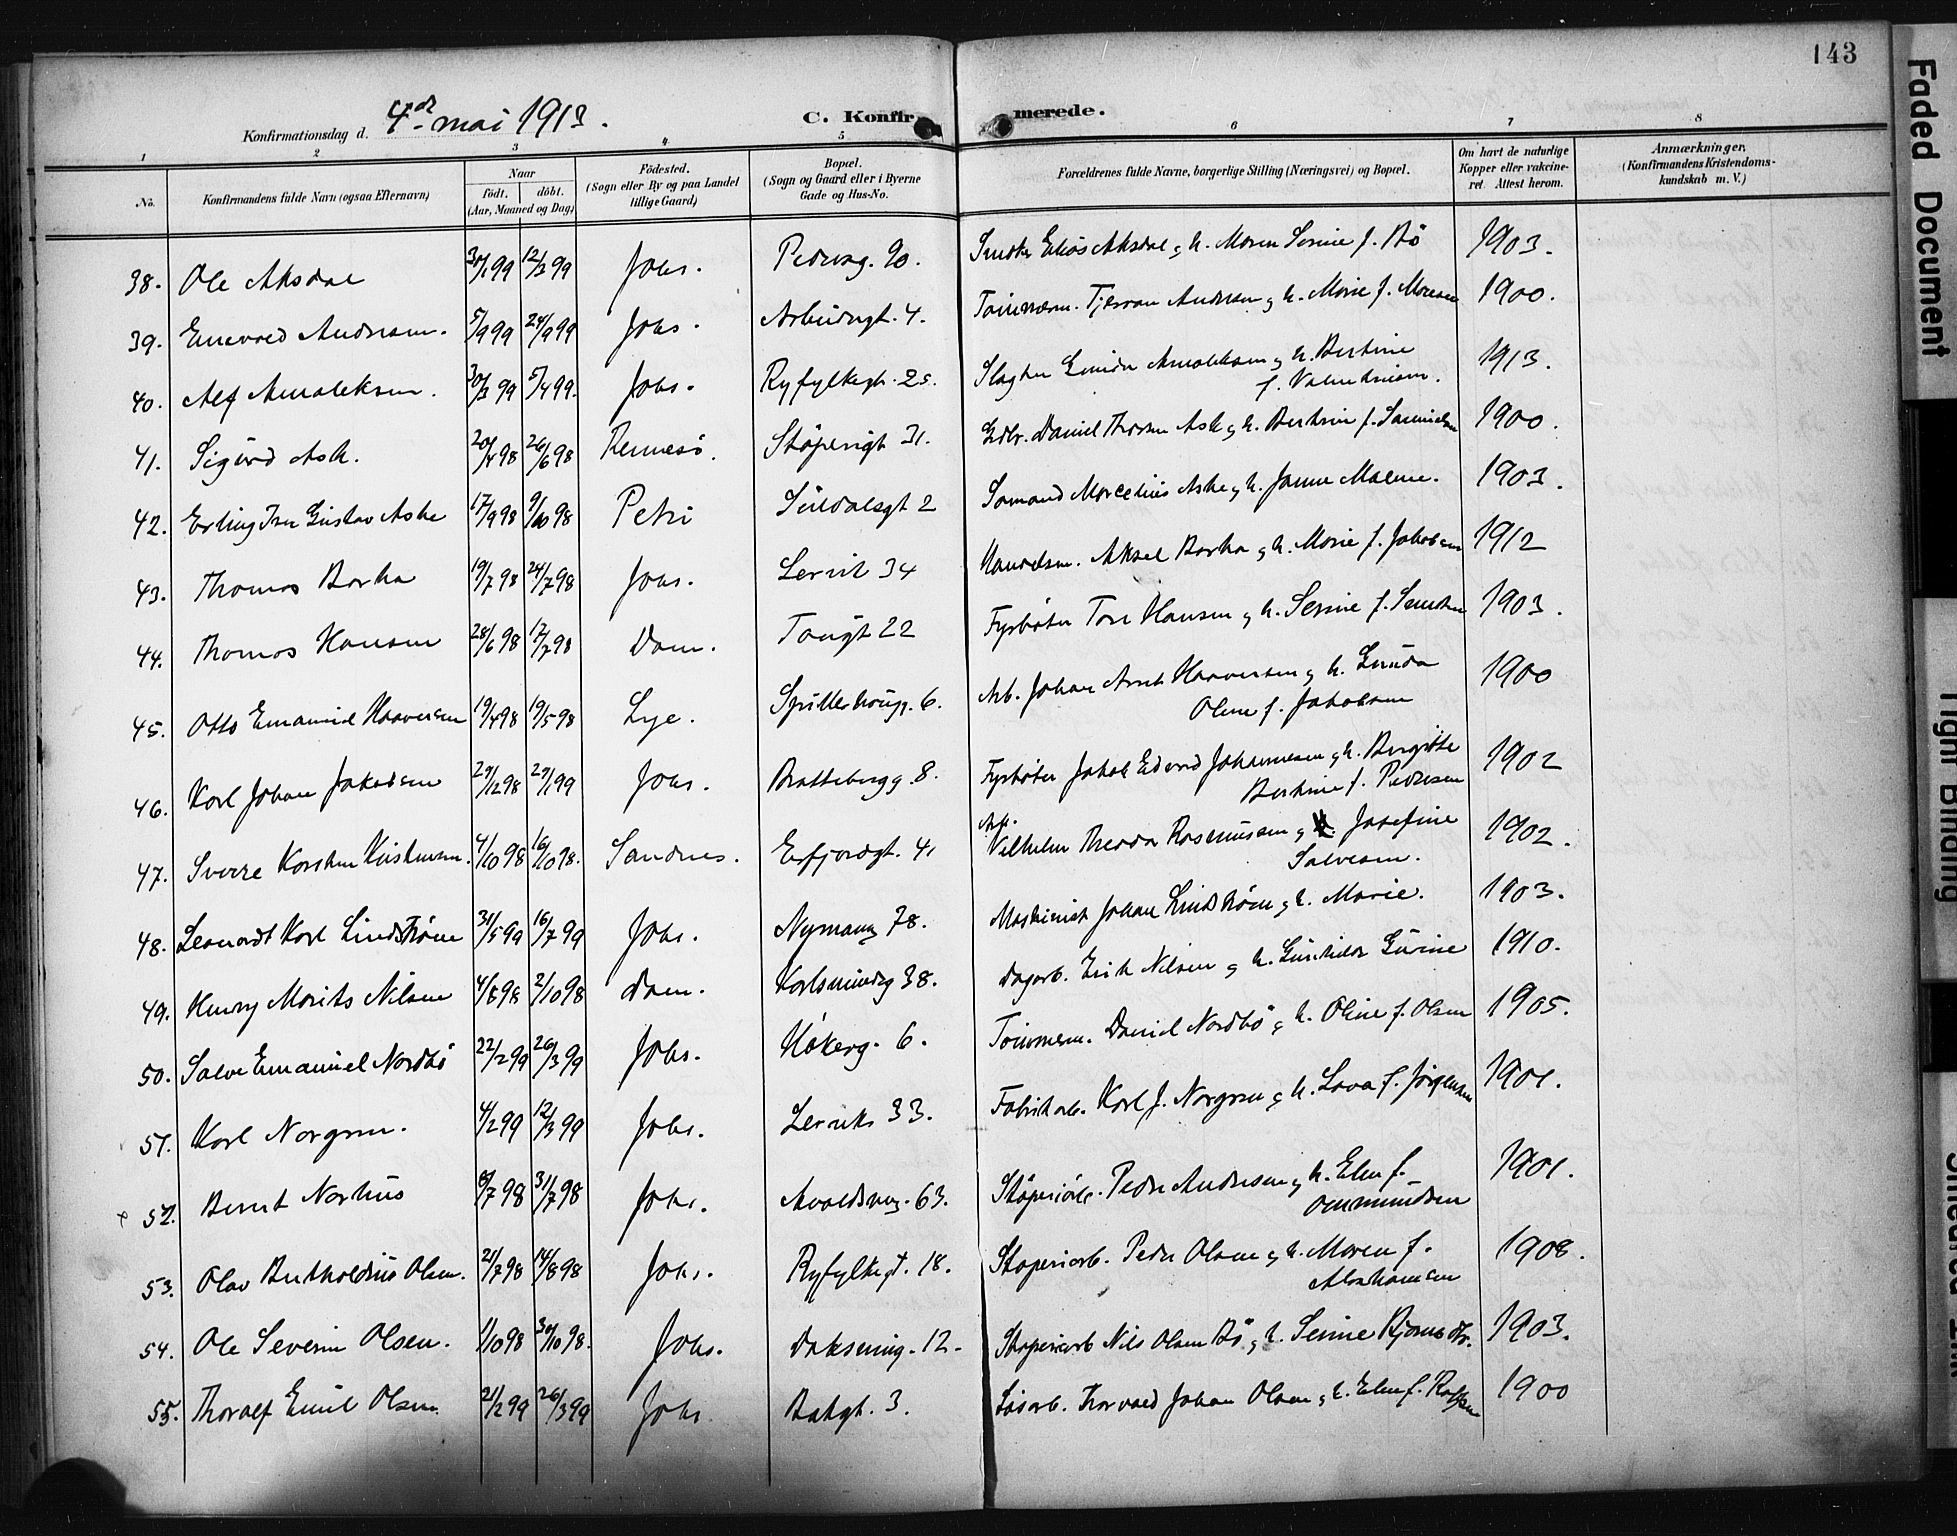 143
Konfirmationsdag d. 4de mai 1913.
C. Konfirmerede.
1 2 3 4 5 6 7 8
No. Konfirmandens fulde Navn (ogsaa Efternavn) Naar født. døbt. (Aar, Maaned og Dag) Fødested. (Sogn eller By og paa Landet tillige Gaard) Bopæl. (Sogn og Gaard eller i Byerne Gade og Hus-No. Forældrenes fulde Navne, borgerlige Stilling (Næringsvei) og Bopæl. Om havt de naturlige Kopper eller vakcineret. Attest herom. Anmærkninger. (Konfirmandens Kristendomskundskab m. V.)
38. Ole Aksdal 30/1 99 12/3 99 Johs. Pedersg. 90. Elias Aksdal og h. Maren Serine f. Bø 1903.
39. Enevald Andersen. 5/9 99 24/9 99 Johs. Arbeidergt. 4. Tømmerm. Andersen og h. Marie f. 1900.
40. Alf Amaleksen. 30/3 99 5/4 99. Johs. Ryfylkegt. 25. Slagter Amaleksen og h. Bertine
f. Valentinsen. 1913.
41. Sigurd Ask. 20/4 98 26/6 98 Rennesø. Støperigt 31. Daniel Ask og h. Bertine f. Samuelsen 1900.
42. Erling Gustav Aske 17/9 98 9/10 98 Petri 2 Sømand Marcelius Aske og h. Janna Malene. 1903.
43. Thomas Barka 19/7 98 24/7 98 Johs. Lervik 34 Handelsm. Aksel Barka og h. Marie f. Jakobsen 1912
44. Thomas Hansen 28/6 98 17/7 98 Dom. Taugt 22 Fyrbøter Tore Hansen og h. Serine f. 1903.
45. Otto Emanuel Haaversen 19/4 98 19/5 98 Lye. 6. Arb. Johan Haaversen og h.
Oline f. Jakobsen 1900
46. Karl Johan Jakobsen 29/12 98 29/1 99 Johs. Brattebergg. 8. Fyrbøter Jakob Edvard Johannesen og h. Bergitte
Bertine f. Pedersen 1902
47. Sverre Karsten Kristensen. 4/10 98 16/10 98. Sandnes. Erfjordgt. 4. Vilhelm Theodor Rasmussen og Josefine
Salvesen. 1902.
48. Leonardt Karl Lindstrøm 31/5 99 16/7 99 Johs. Nymansg 78. Maskinist Johan Lindstrøm og h. Marie. 1903.
49. Henry Morits Nilsen 4/8 98 2/10 98 Dom. Karlsmindeg 38. Dagarb. Erik Nilsen og h. Gunhilda Gurine 1910.
50. Salve Emanuel Nordbø 22/2 99 26/3 99 Johs. Høkerg. 6. Tømmerm. Daniel Nordbø og h. Oline f. Olsen 1905.
51. Karl Norgren. 4/2 99 12/3 99 Johs. Lervik 33. Fabrikarb. Karl J. Norgren og h. Lova f. Jørgensen 1901.
52. Bernt Norhus 8/7 98 31/7 98 Johs. Avaldsnesg. 63. Støperiarb. Peder Andersen og h. Elen f.
Ommundsen 1901.
53. Olav Bertholdius Olsen. 21/7 98 14/8 98 Johs. Ryfylkegt. 18. Støperiarb. Peder Olsen og h. Maren f.
Abrahamsen 1908.
54. Ole Severin Olsen. 1/10 98 30/10 98. Johs. 12. Støperiarb Nils Olsen Bø og h. Serine 1903.
55. Thoralf Emil Olsen 21/2 99 26/3 99 Johs. Bakgt. 3. Løsarb. Thorvald Johan Olsen og h. Elen f. 1900
Faded Document
Tight Binding